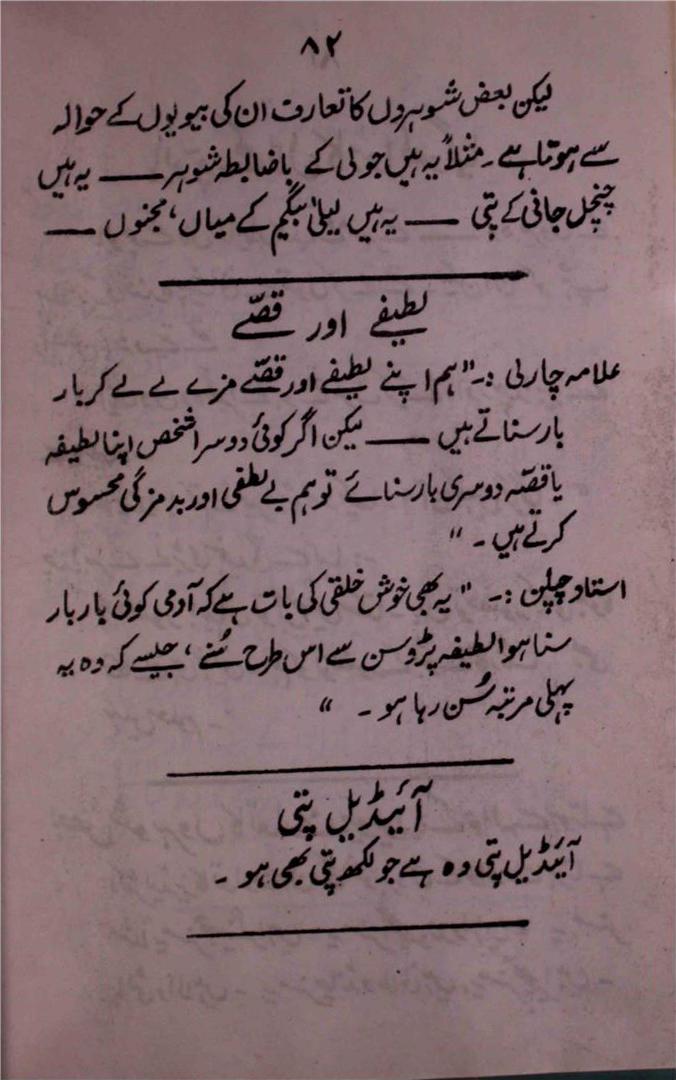 ۸۲
لیکن بعض شوہروں کا تعارف ان کی بیویوں کے حوالہ
سے ہوتا ہے۔ مثلاً یہ ہیں جولی کے باضابطہ شوہر —— یہ ہیں
چنچل جانی کے پتی —— یہ ہیں لیلیٰ بیگم کے میاں، مجنوں ——
لطیفے اور قصّے
علامہ چارلی :۔ "ہم اپنے لطیفے اور قصّے مزے لے لے کر بار
بار سناتے ہیں —— لیکن اگر کوئی دوسرا شخص اپنا لطیفہ
یا قصّہ دوسری بار سنائے تو ہم بے لطفی اور بدمزگی محسوس
کرتے ہیں۔"
استاد چپلن :۔ "یہ بھی خوش خلقی کی بات ہے کہ آدمی کوئی بار بار
سنا ہوا لطیفہ پڑوسن سے اس طرح سُنے، جیسے کہ وہ یہ
پہلی مرتبہ سُن رہا ہو۔"
آئیڈیل پتی
آئیڈیل پتی وہ ہے جو لکھ پتی بھی ہو۔